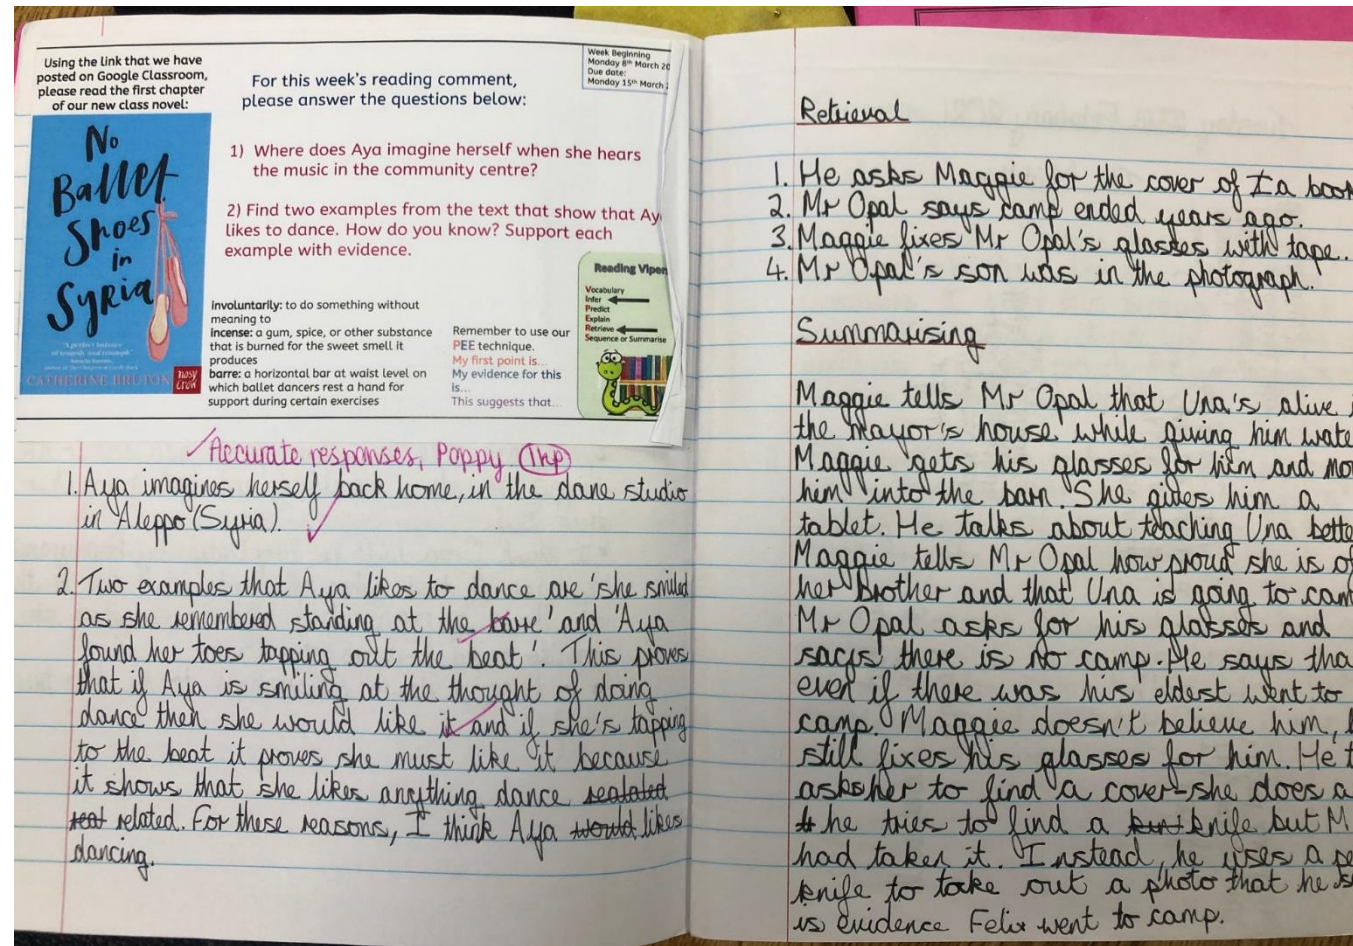 Using the link that we have
posted on Google Classroom,
please read the first chapter
of our new class novel:
No
Ballet
Shoes
in
Syria
"A perfect balance
of tragedy and triumph"
CATHERINE BRUTON
nosy
crow
For this week's reading comment,
please answer the questions below:
Week Beginning
Monday 8th March 20
Due date:
Monday 15th March
1) Where does Aya imagine herself when she hears
the music in the community centre?
2) Find two examples from the text that show that Ay
likes to dance. How do you know? Support each
example with evidence.
involuntarily: to do something without
meaning to
incense: a gum, spice, or other substance
that is burned for the sweet smell it
produces
barre: a horizontal bar at waist level on
which ballet dancers rest a hand for
support during certain exercises
Remember to use our
PEE technique.
My first point is...
My evidence for this
is...
This suggests that...
Reading Viper
Vocabulary
Infer
Predict
Explain
Retrieve
Sequence or Summarise
Accurate responses, Poppy 1hp
1. Aya imagines herself back home, in the dane studio
in Aleppo (Syria).
2. Two examples that Aya likes to dance are 'she smiled
as she remembered standing at the barre' and 'Aya
found her toes tapping out the beat'. This proves
that if Aya is smiling at the thought of doing
dance then she would like it and if she's tapping
to the beat it proves she must like it because
it shows that she likes anything dance
related. For these reasons, I think Aya would likes
dancing.
Retrieval
1. He asks Maggie for the cover of a book
2. Mr Opal says camp ended years ago.
3. Maggie fixes Mr Opal's glasses with tape.
4. Mr Opal's son was in the photograph.
Summarising
Maggie tells Mr Opal that Una's alive
the mayor's house while giving him wate
Maggie gets his glasses for him and mo
him into the barn. She gides him a
tablet. He talks about teaching Una bette
Maggie tells Mr Opal how proud she is of
her brother and that Una is going to cam
Mr Opal asks for his glasses and
says there is no camp. He says tha
even if there was his eldest went to
camp. Maggie doesn't believe him,
still fixes his glasses for him. He t
asks her to find a cover-she does a
he tries to find a knife but M
had taken it. Instead, he uses a pe
knife to take out a photo that he s
is evidence Felix went to camp.